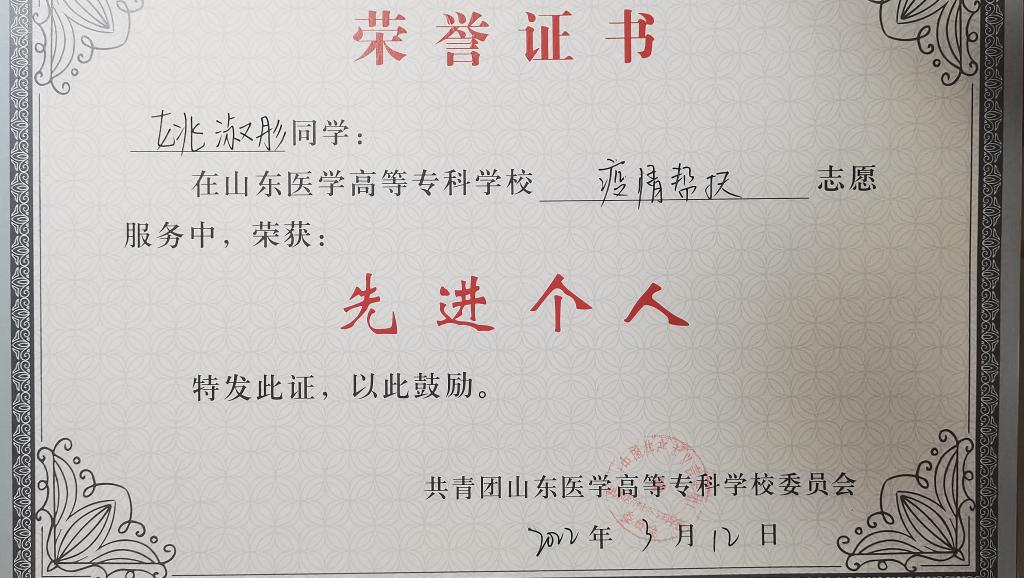 荣誉证书
姚淑彤同学：
在山东医学高等专科学校疫情帮扶志愿
服务中，荣获：
先进个人
特发此证，以此鼓励。
共青团山东医学高等专科学校委员会
2022年3月12日